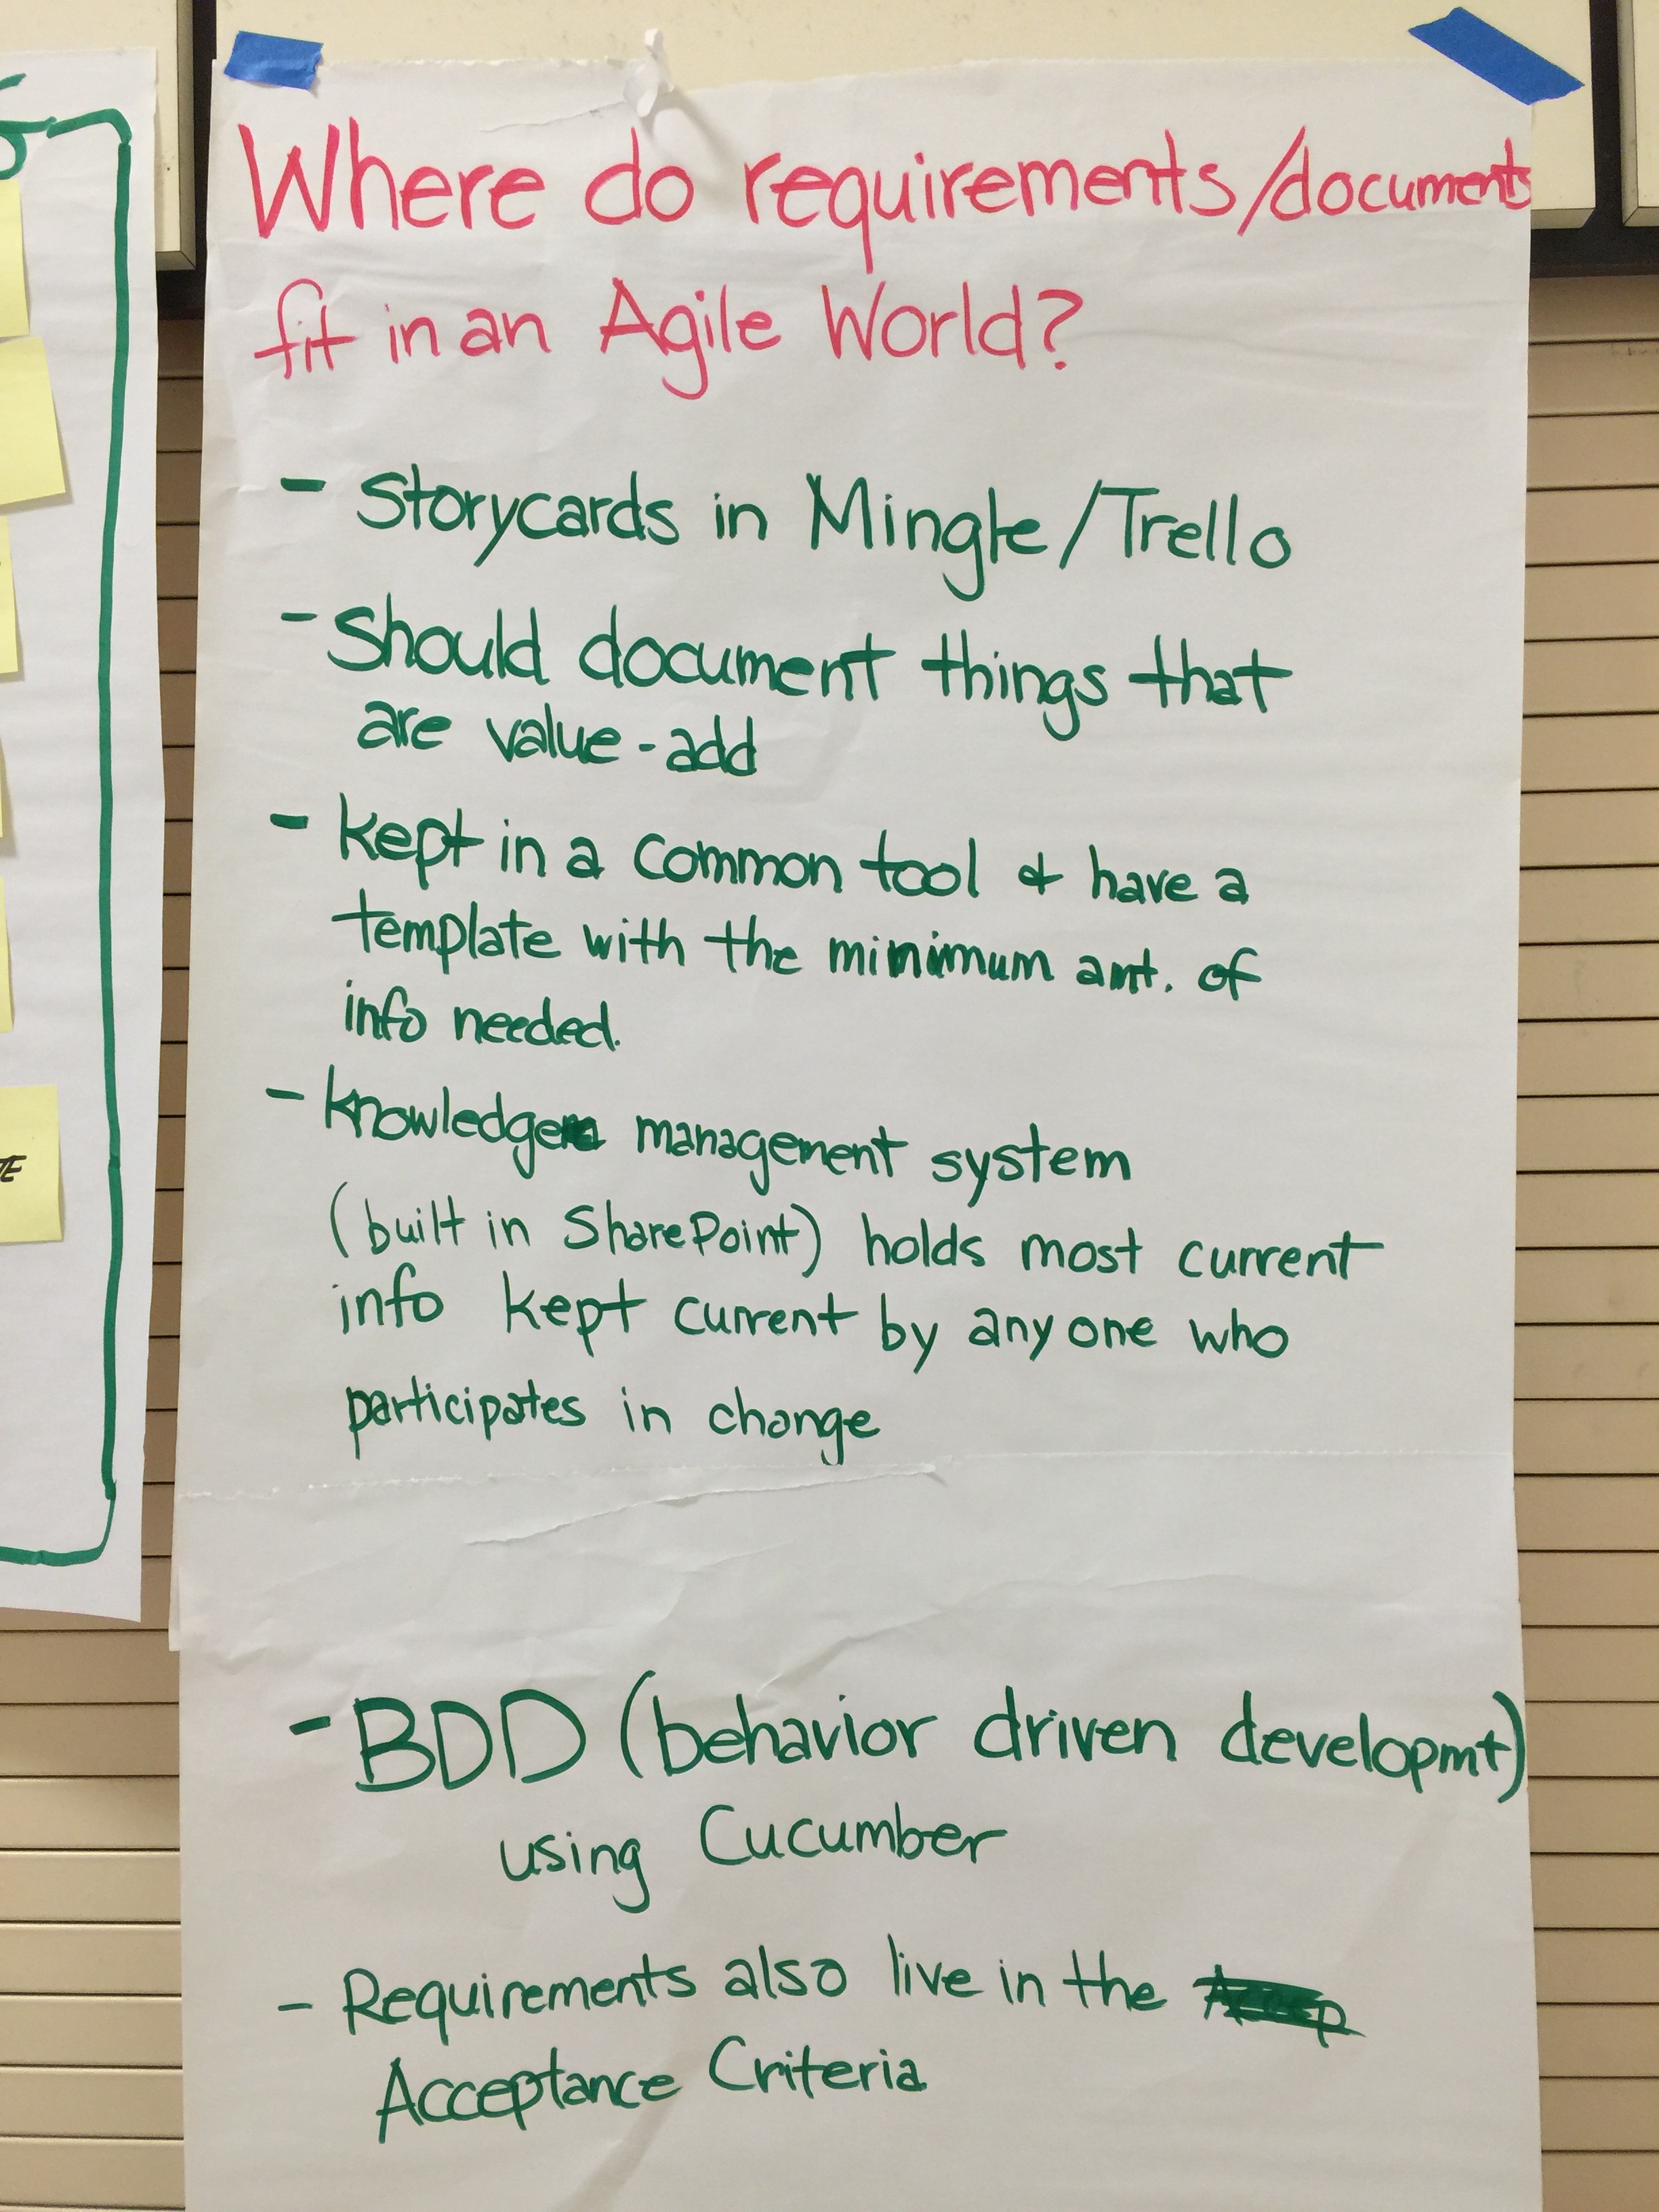 Where do requirements/documents
fit in an Agile World?
- Storycards in Mingle/Trello
- Should document things that
are value-add
- kept in a common tool & have a
template with the minimum amt. of
info needed.
- knowledge management system
(built in SharePoint) holds most current
info kept current by anyone who
participates in change
- BDD (behavior driven developmt)
using Cucumber
- Requirements also live in the
Acceptance Criteria